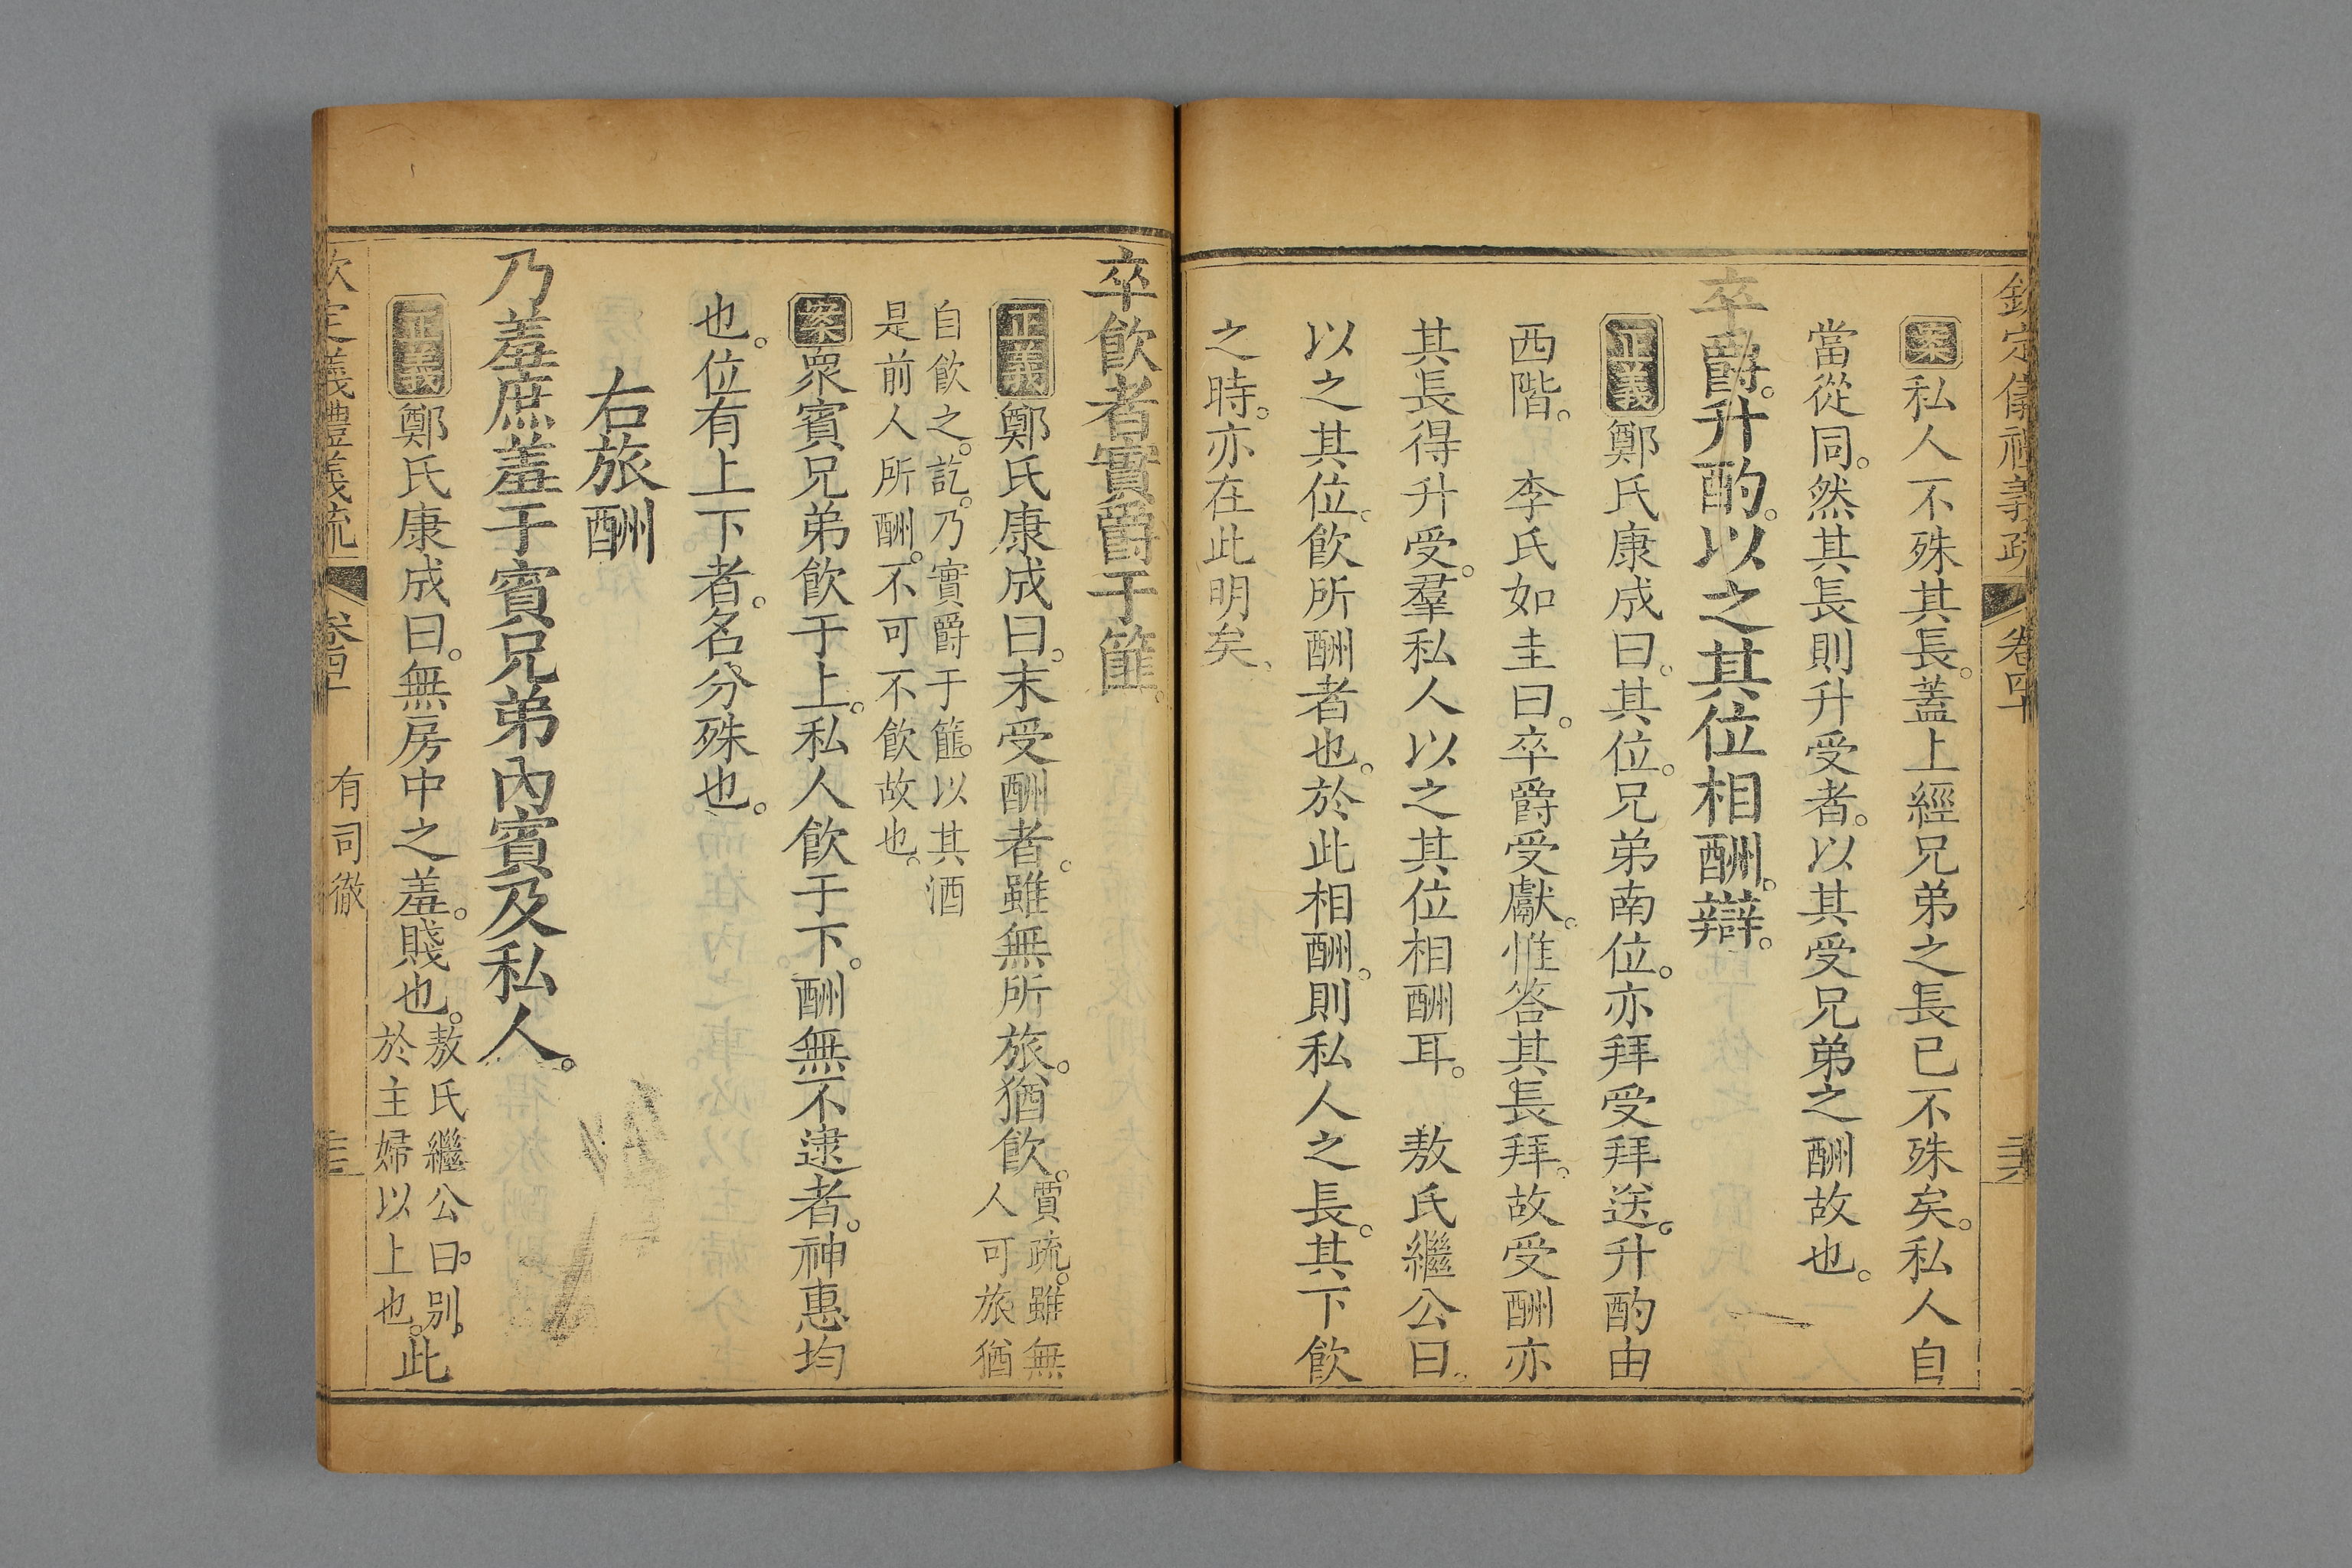 欽定儀禮義疏 卷四十
案私人不殊其長。蓋上經兄弟之長已不殊矣。私人自
當從同。然其長則升受者。以其受兄弟之酬故也。
卒爵。升酌。以之其位相酬。辯。
正義鄭氏康成曰。其位。兄弟南位。亦拜受拜送。升酌由
西階。 李氏如圭曰。卒爵受獻。惟答其長拜。故受酬亦
其長得升受。羣私人以之其位相酬耳。 敖氏繼公曰。
以之其位。飲所酬者也。於此相酬。則私人之長。其下飲
之時。亦在此明矣。
卒飲者實爵于篚。
正義鄭氏康成曰。末受酬者。雖無所旅。猶飲。賈疏。雖無
人可旅猶
自飲之。訖。乃實爵于篚。以其酒
是前人所酬。不可不飲故也。
案眾賓兄弟飲于上。私人飲于下。酬無不逮者。神惠均
也。位有上下者。名分殊也。
右旅酬
乃羞庶羞于賓兄弟內賓及私人。
正義鄭氏康成曰。無房中之羞。賤也。敖氏繼公曰。別。
於主婦以上也。此
欽定義禮義疏 卷四十 有司徹